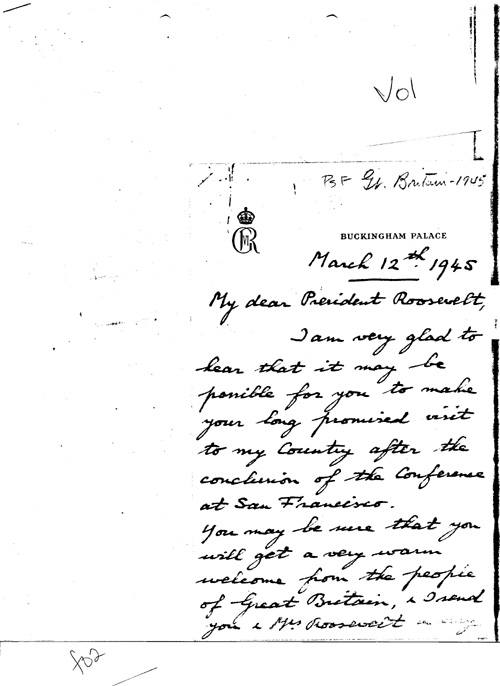 Vol
PSF Gt. Britain-1945
BUCKINGHAM PALACE
March 12th. 1945
My dear President Roosevelt,
I am very glad to
hear that it may be
possible for you to make
your long promised visit
to my Country after the
conclusion of the Conference
at San Francisco.
You may be sure that you
will get a very warm
welcome from the people
of Great Britain, & I send
you & Mrs Roosevelt
f02